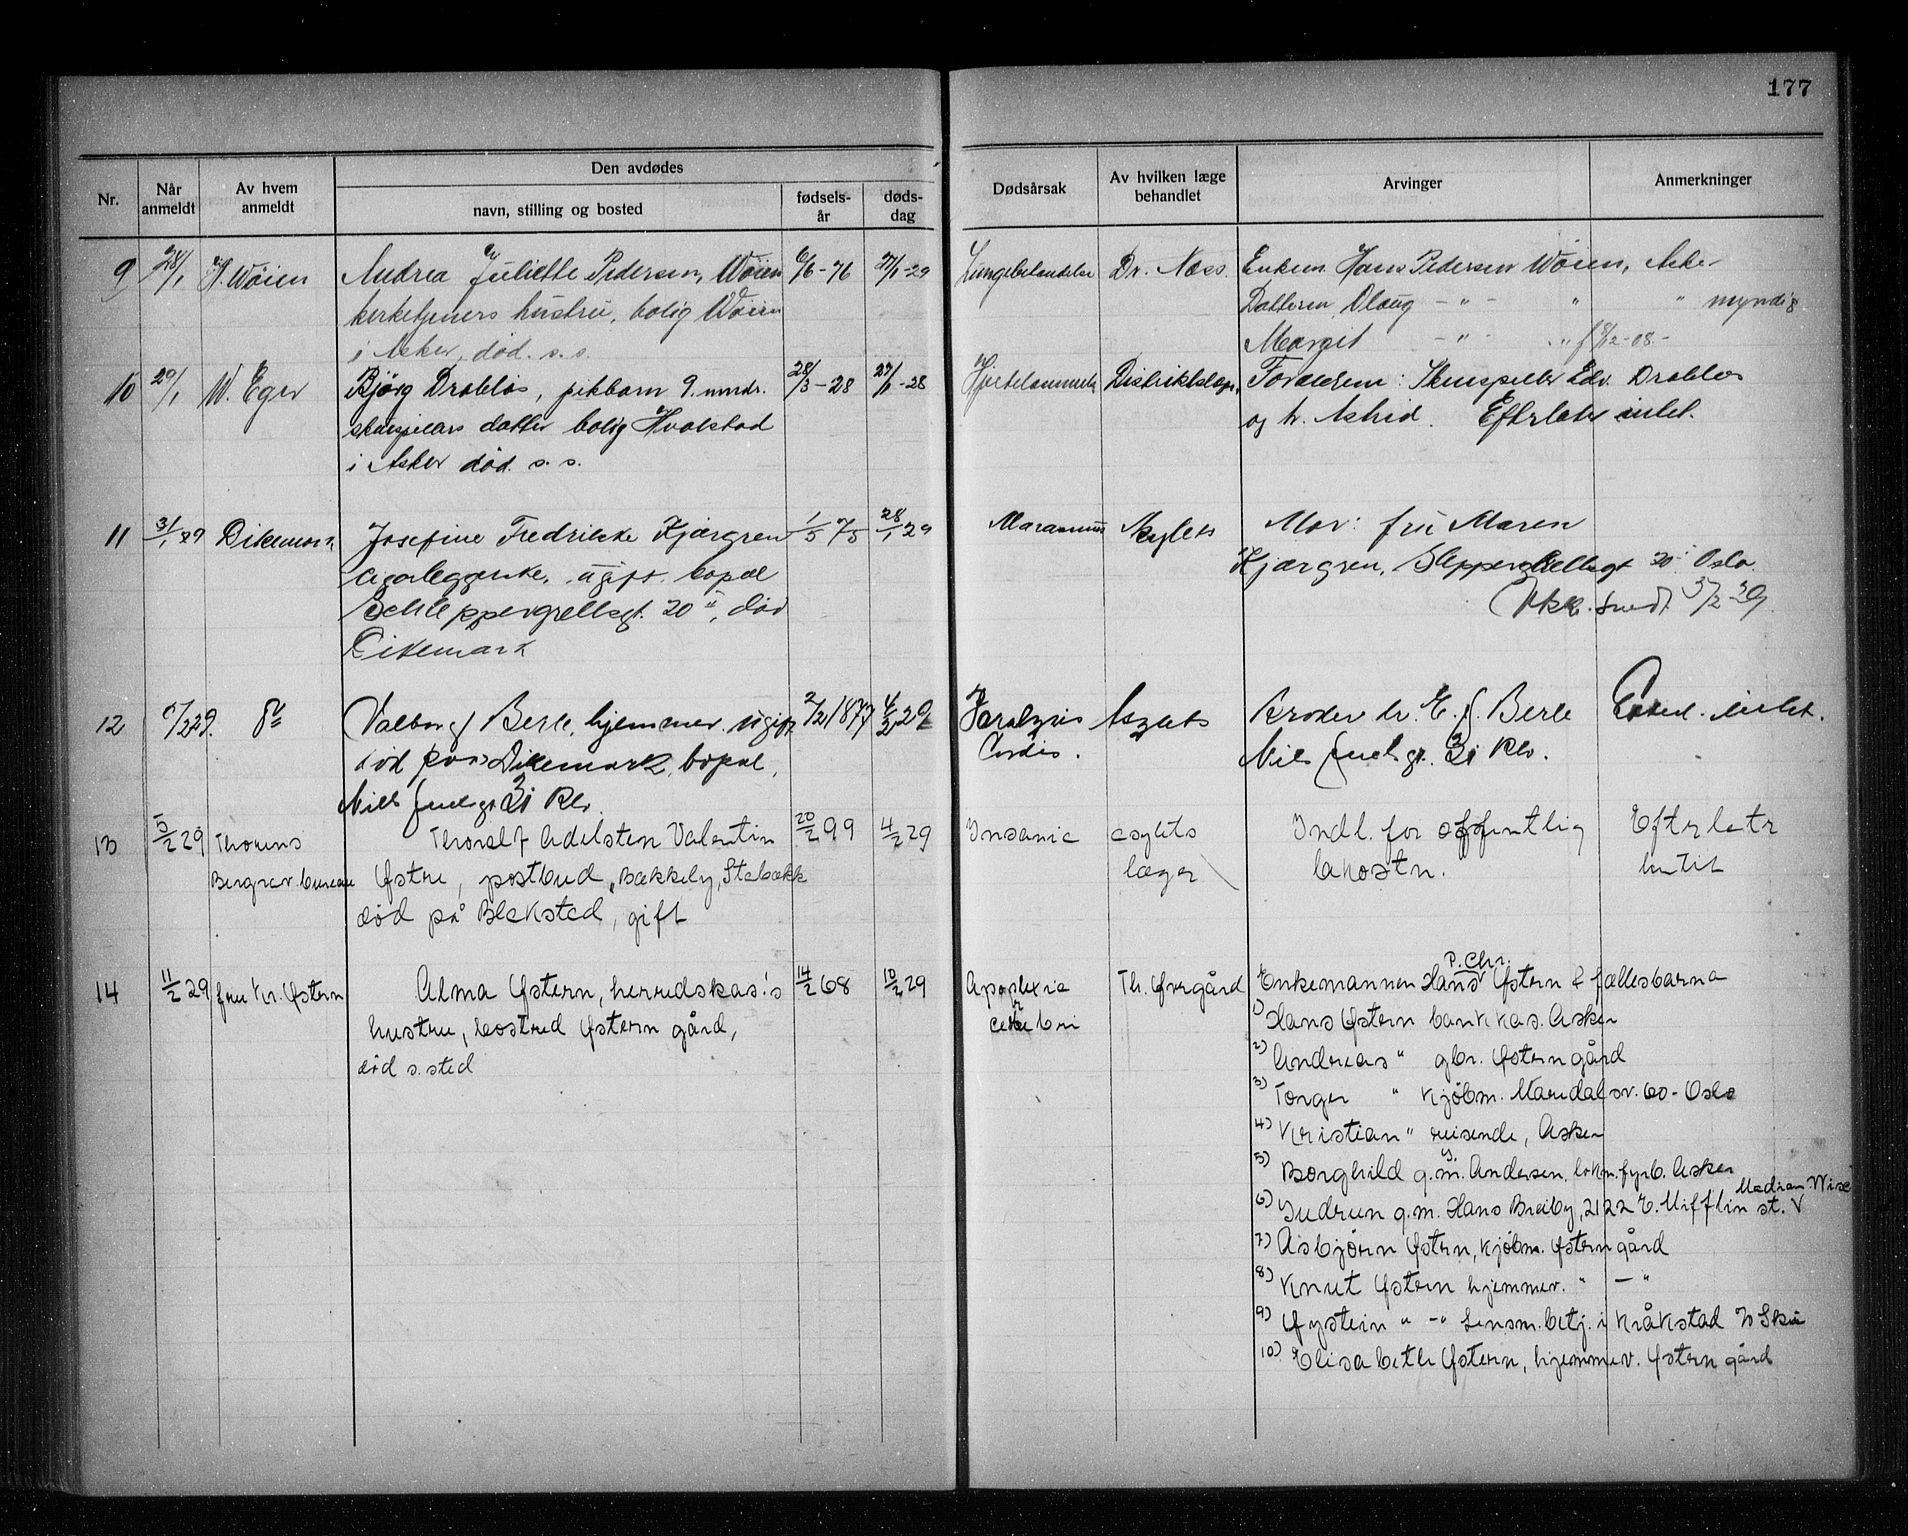 177
Nr.
Når anmeldt
Av hvem anmeldt
Den avdødes
navn, stilling og bosted
fødsels-år
døds-dag
Dødsårsak
Av hvilken læge behandlet
Arvinger
Anmerkninger
9 28/1 H. Wøien Andrea Juliette Pedersen, Wøien 6/6-76 27/1-29 Dr. Næss. Enkem. Hans Pedersen Wøien, Asker
kirketjeners hustru, bolig Wøien Datteren Olaug -"- " " myndig
i Asker, død. s. s. Margit -"- " f 8/12-08-
10 29/1 W. Eger Bjørg Drabløs, pikebarn 9. mndr. 28/3-28 27/1-28 Distriktslægen Forældrene: Skuespiller Edv. Drabløs
skuespillers datter bolig Hvalstad og hr. Astrid. Efterlater intet.
i Asker død. s. s.
11 31/1 29 Dikemark Josefine Fredrikke Kjærgren 1/5 75 28/1 29 Marasmus Asylets Mor: fru Maren
ugift. bopæl Kjærgren, Sleppegrellsgt 20 Oslo
Schleppergrellsgt. 20 II, død 5/2 29
Dikemark
12 /2 29. do Valborg Berle, hjemmev. ugift 2/2 1877 4/2 29 Paralysis Asylets Broder hr. E. J. Berle intet.
død paa Dikemark, bopæl, Cordis. Niels Juelsgt. 31 Kbr.
Niels Juelsgt 31 Kbr.
13 5/2 29 Thorens Thoralf Adelsten Valentin 20/2 99 4/2 29 Insanie asylets Indl. for offentlig Efterlatr
Begrav. bureau Østre, postbud, Bækkeby, Stabækk læger bekostn. intet
død på Blakstad, gift
14 11/2 29 fru Kr. Østern Alma Østern, herredskas:s 14/2 68 10/2 29 Apoplexia Th. Overgård Enkemannen Hans P. Chr. Østern & fællesbarna
hustru, bosted Østern gård, cerebri 1) Hans Østern bankkas. Asker
død s. sted 2) Andreas " gbr. Østern gård
3) Torger " Kjøbm. Maridalsv. 60 - Oslo
4) Kristian " reisende, Asker
5) Borghild g. m. Andersen, lokm. fyrb. Asker
6) Gudrun g. m. Hans Breiby, 2122 E. Mifflin st. Madison Wisc
7) Asbjørn Østern, Kjøbm. Østern gård
8) Knut Østern hjemmev. " - "
9) Øystein " -" Lensm. betj. i Kråkstad
10) Elisabeth Østern, hjemmev. Østern gård